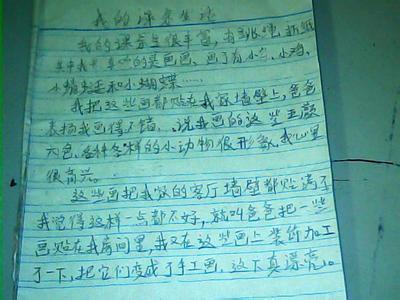 我的课余生活
我的课余生活很丰富，有跳绳，折纸
其中我最喜欢的是画画，画了有小鸟、小鸡、
小蜻蜓和小蝴蝶……
我把这些画都贴在我家墙壁上，爸爸
表扬我画得不错，说我画的这些五颜
六色、各种各样的小动物很形象，我心里
很高兴。
这些画把我家的客厅墙壁都贴满了
我觉得这样一点都不好，就叫爸爸把一些
画贴在我房间里，我又在这些画上装饰加工
了一下，把它们变成了手工画，这下真漂亮。